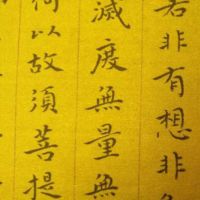 若非有想非
滅度無量無
何以故須菩提